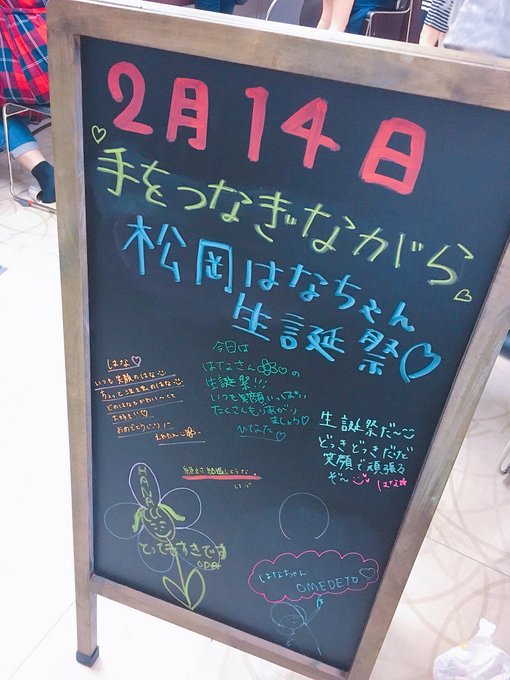 2月14日
手をつなぎながら
松岡はなちゃん
生誕祭♡
はな♡
いつも笑顔のはな
ちょっと泣き虫のはな
どのはなもかわい〜くて
大好き!♡
おめでとう!!
今日は
はなさん♡の
生誕祭!!!
いつも笑顔いっぱい
たくさんもりあがり
ましょう♡
ひなた♡
生誕祭だ〜
どっきどっきだけど
笑顔で頑張る
ぞ〜
はな
HANA
とってもすきです
はなちゃん
OMEDETO♡